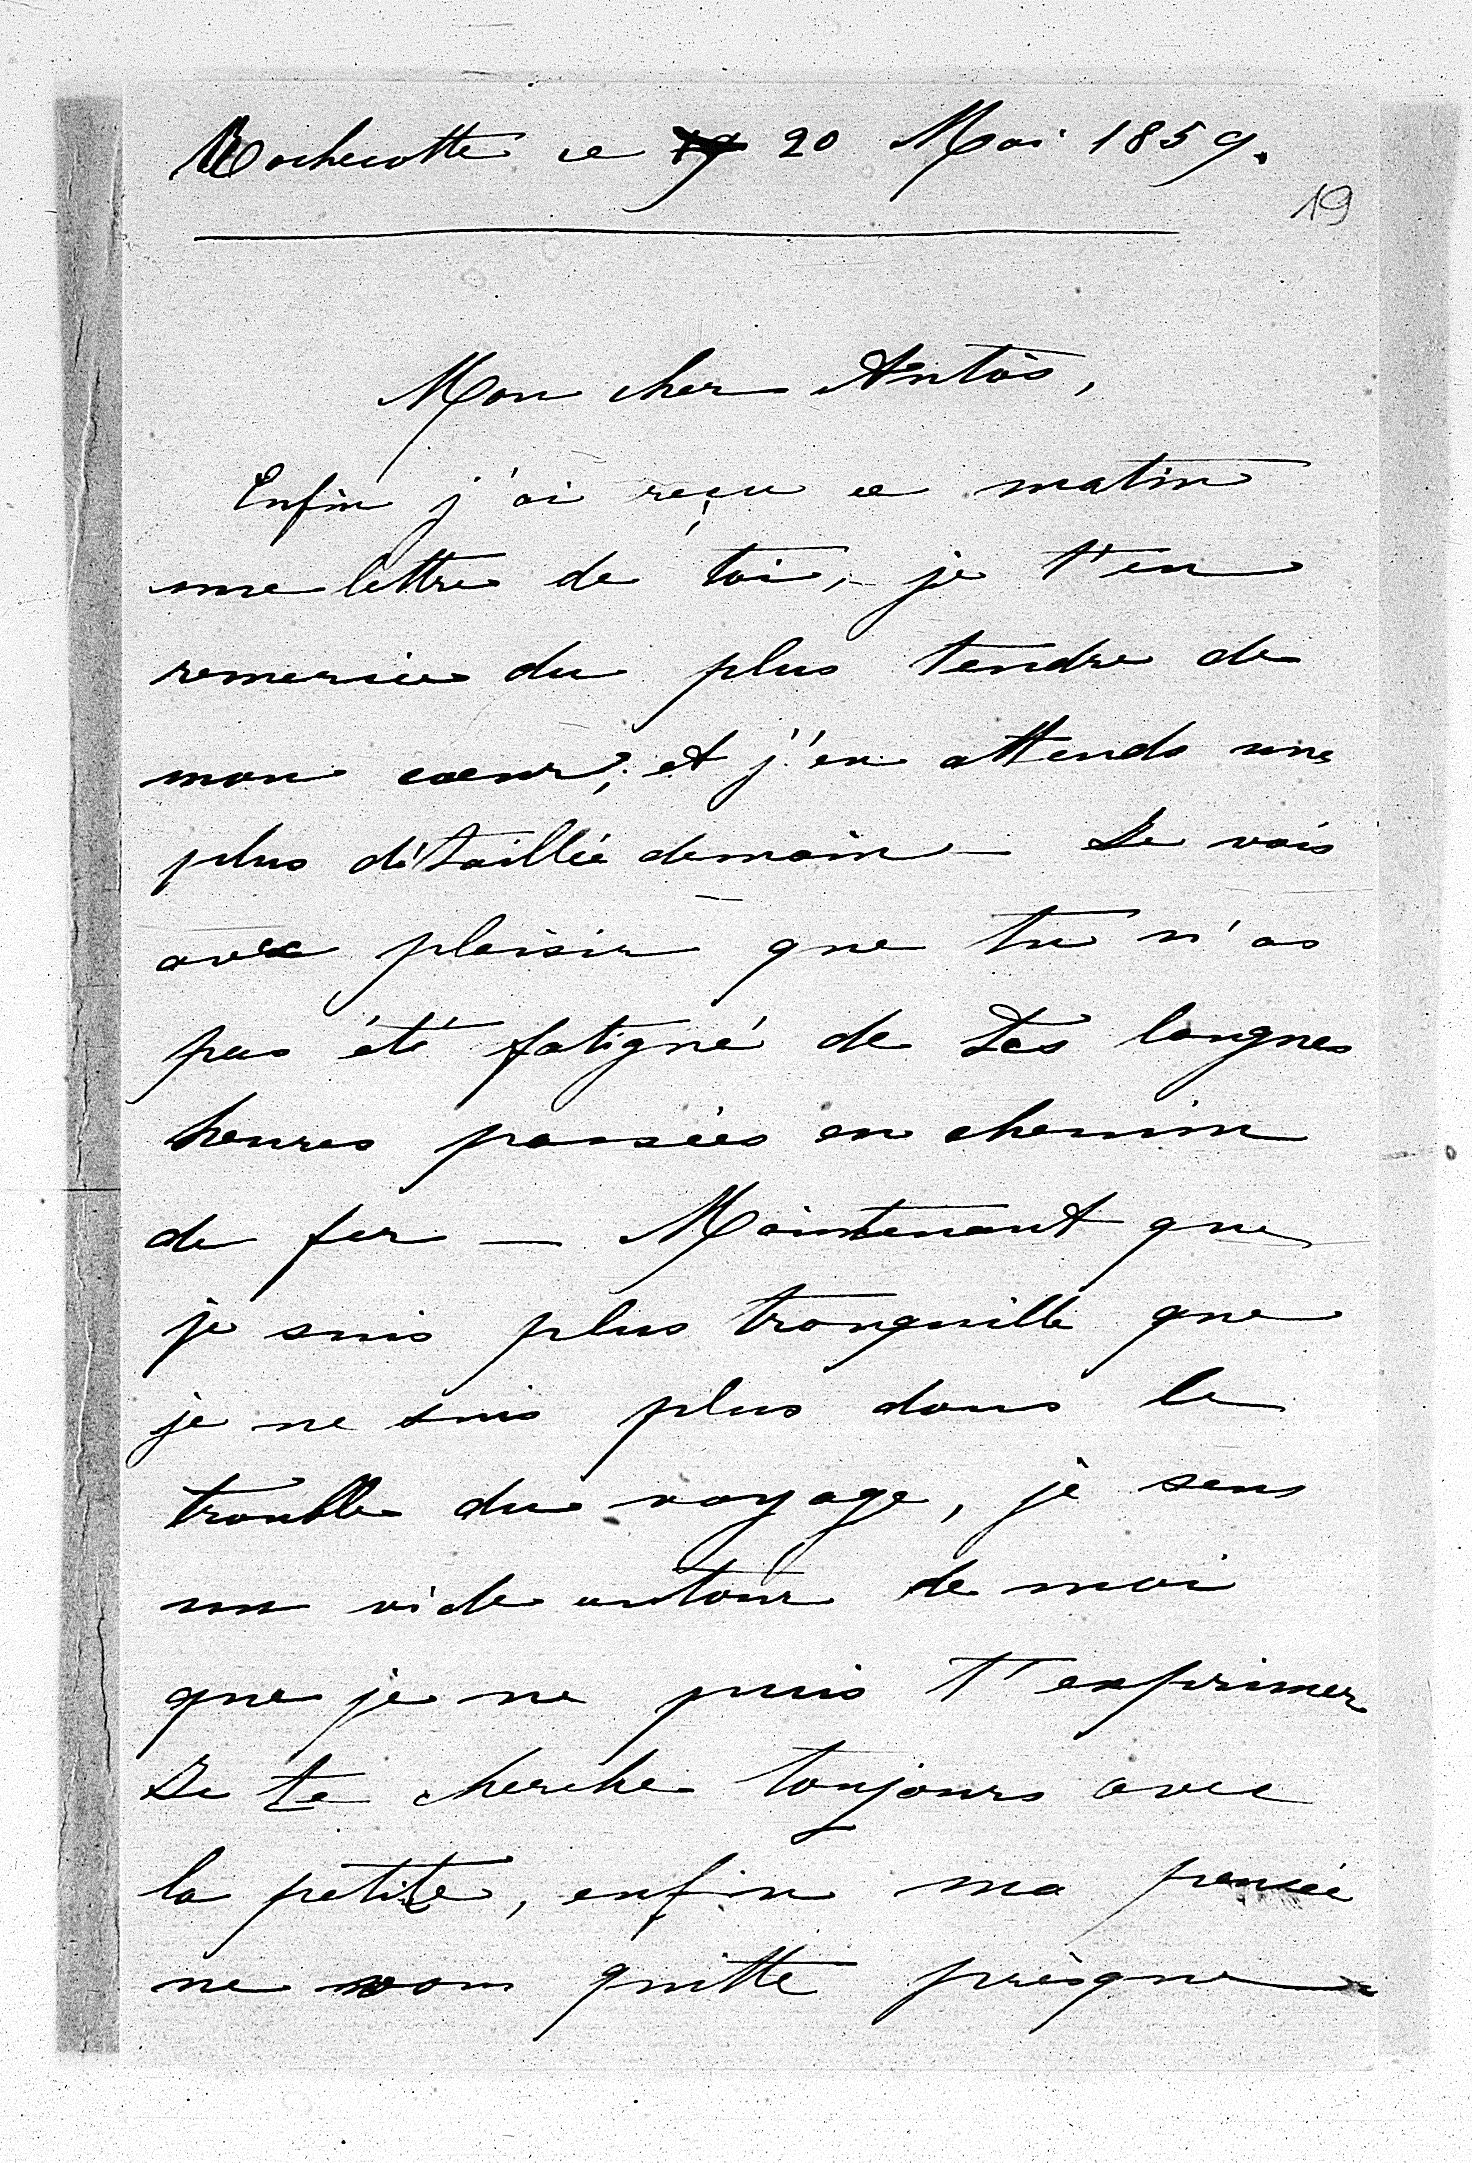 Rochecotte ce 19 20 Mai 1859.
19
Mon cher Antòs,
Enfin j'ai reçu ce matin
une lettre de toi, je t'en
remercie du plus tendre de
mon coeur, et j'en attends une
plus détaillée demain - Je vois
avec plaisir que tu n'as
pas été fatigué de tes longues
heures passées en chemin
de fer — Maintenant que
je suis plus tranquille que
je ne suis plus dans le
trouble du voyage, je sens
un vide autour de moi
que je ne puis t'exprimer
Je te cherche toujours avec
la petite, enfin ma pensée
ne vous quitte presque